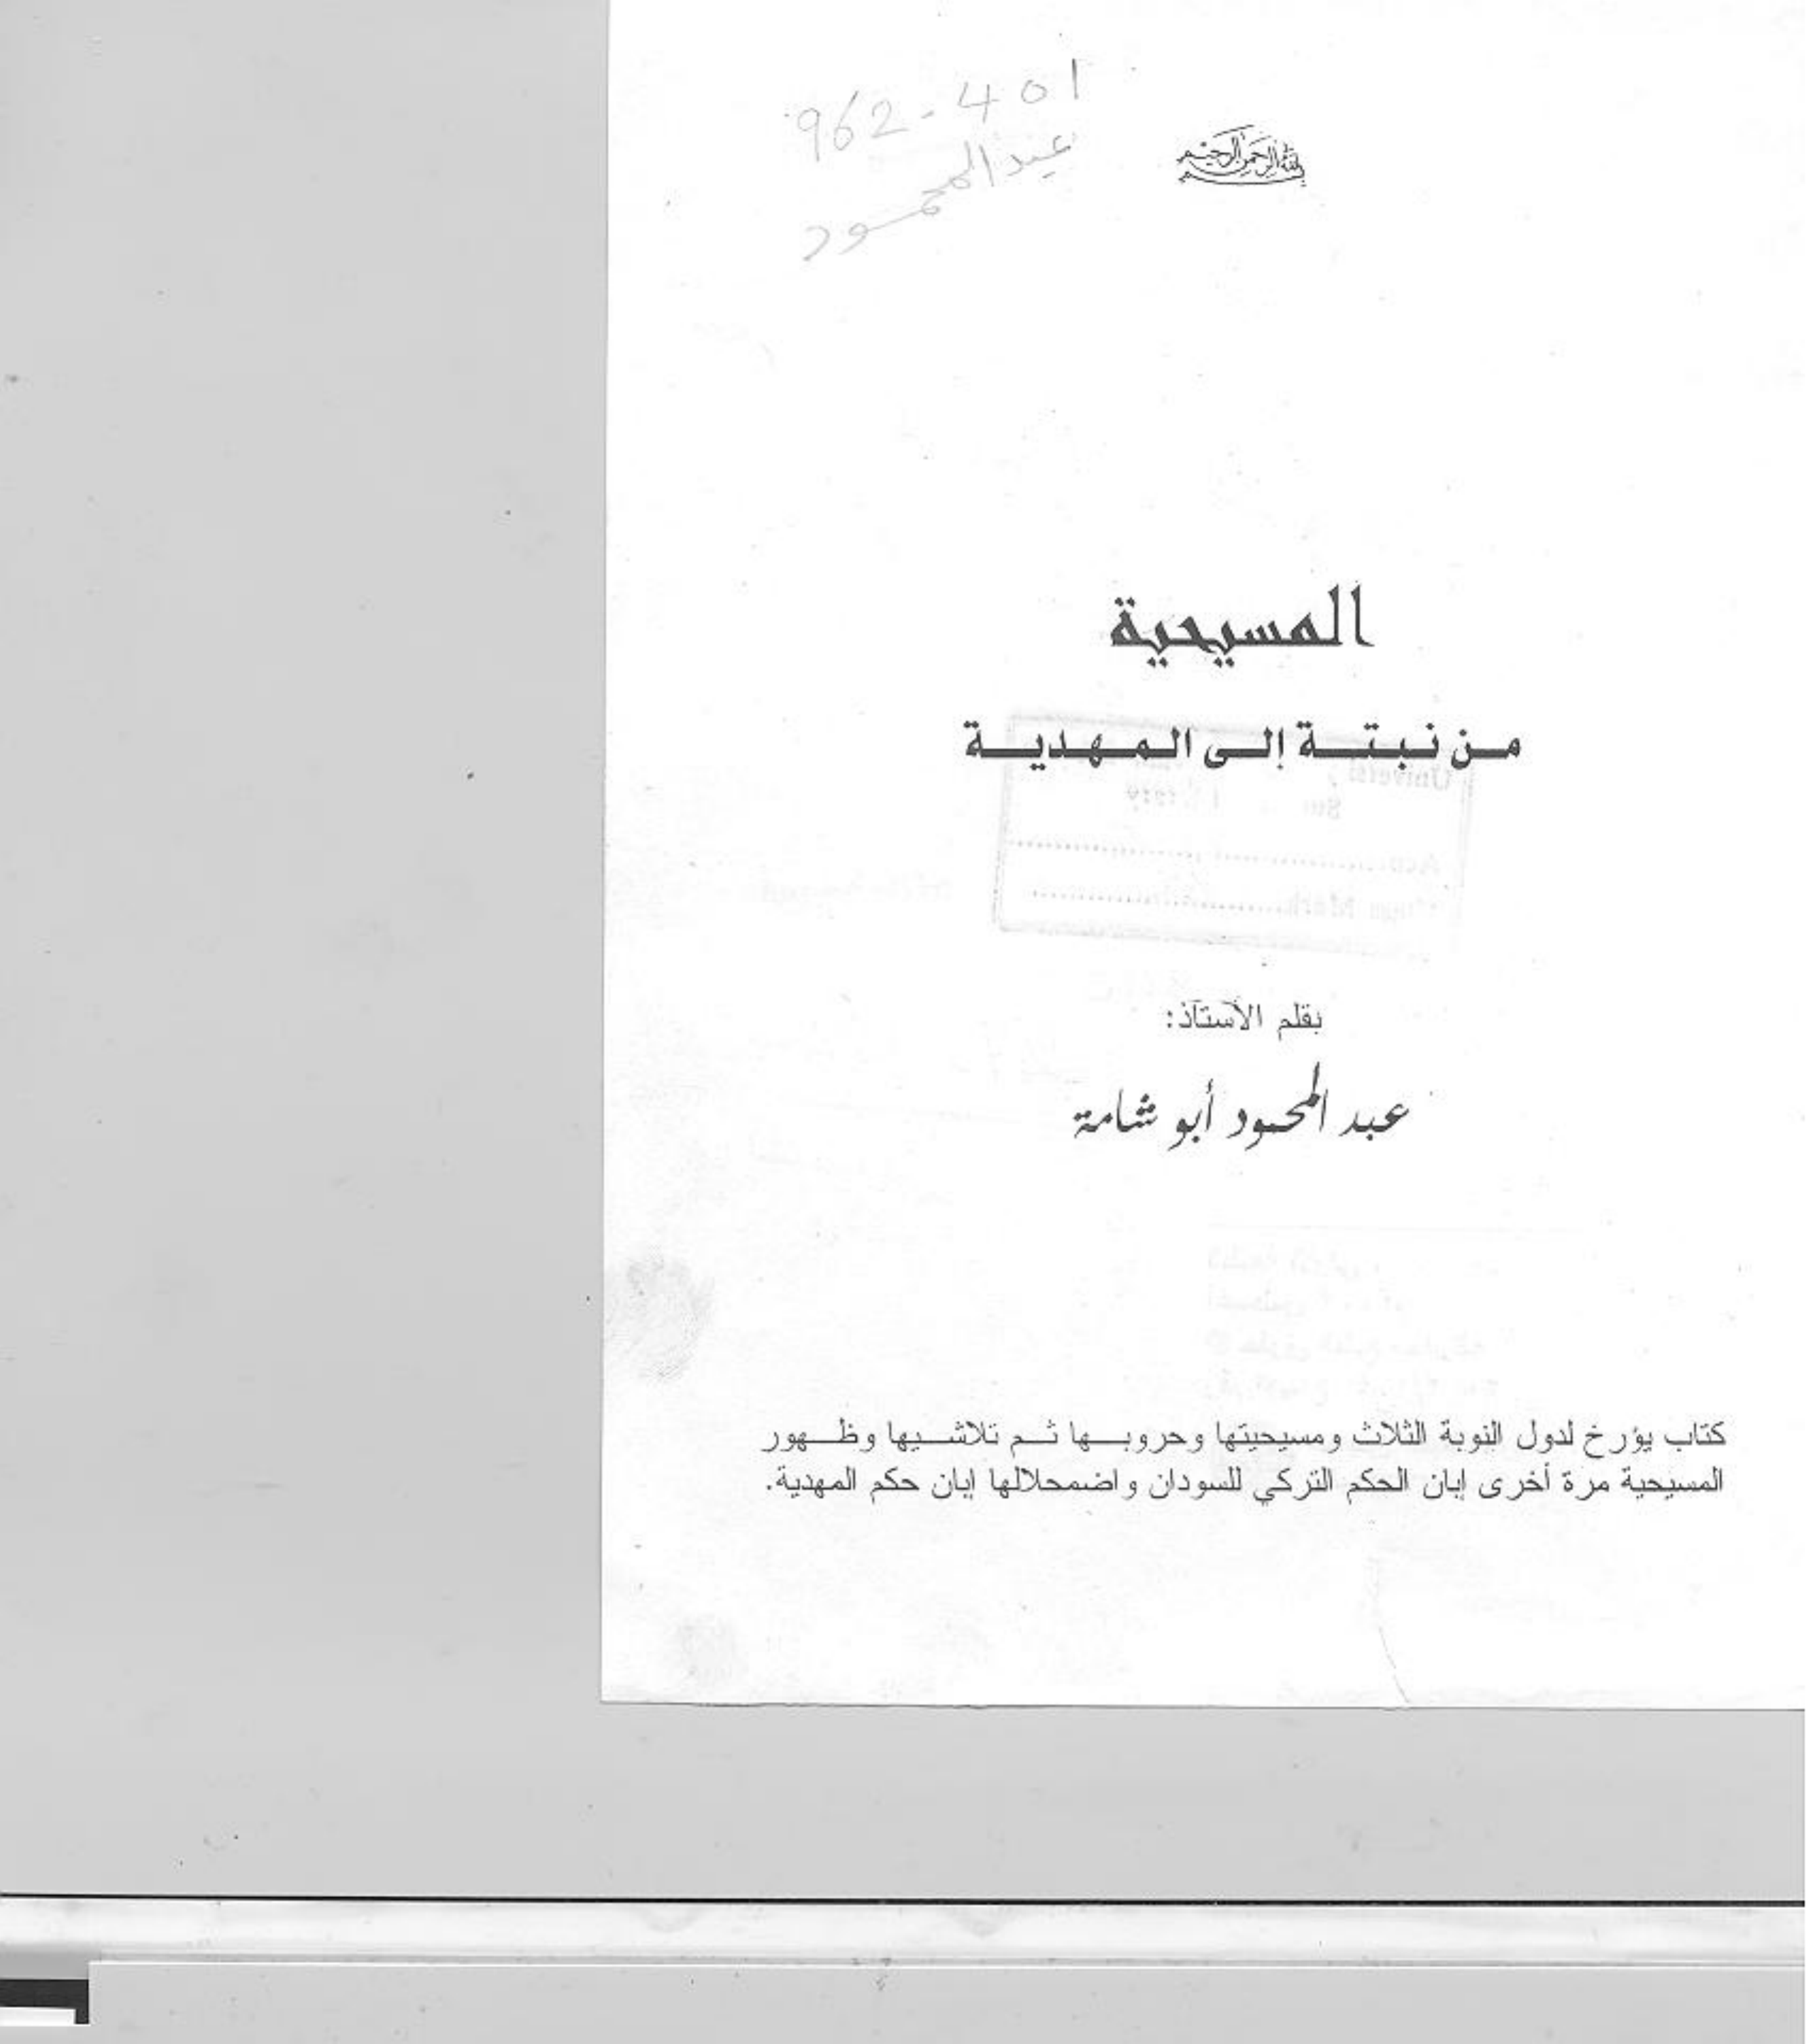 962-401
عبد المحمود
بسم الله الرحمن الرحيم
المسيحية
من نبتة إلى المهدية
بقلم الأستاذ:
عبد المحمود أبو شامة
كتاب يؤرخ لدول النوبة الثلاث ومسيحيتها وحروبها ثم تلاشيها وظهور
المسيحية مرة أخرى إبان الحكم التركي للسودان واضمحلالها إبان حكم المهدية.